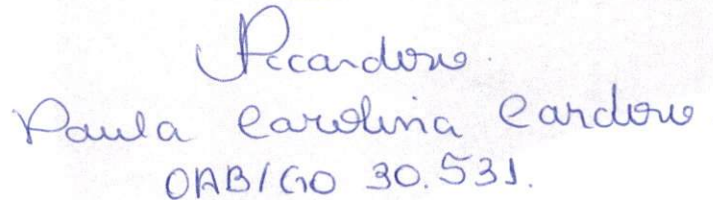 PCCardoso.
Paula Carolina Cardoso
OAB/GO 30.531.